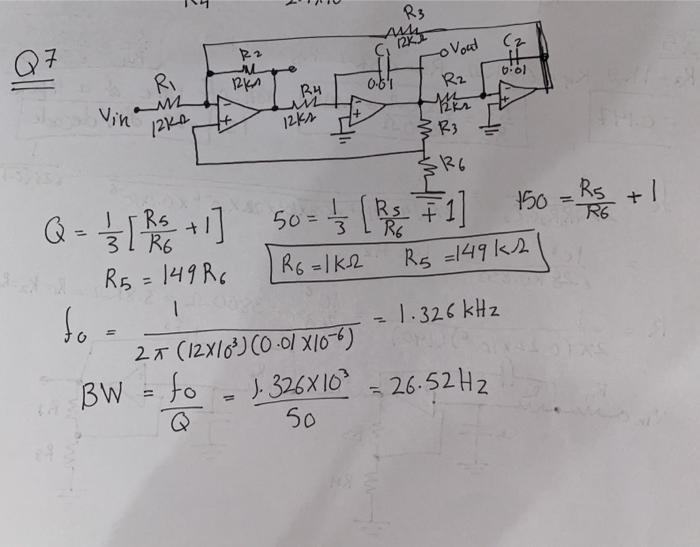 Q7
R3
12KΩ
R2
12KΩ
C1
0.01
Vout
C2
0.01
R1
12KΩ
Vin
R4
12KΩ
R2
12KΩ
R3
R6
- +
- +
- +
Q = 1/3 [R5/R6 + 1]
50 = 1/3 [R5/R6 + 1]
150 = R5/R6 + 1
R5 = 149 R6
R6 = 1KΩ R5 = 149 KΩ
fo = 1 / 2π (12×10³)(0.01×10⁻⁶) = 1.326 kHz
BW = fo/Q = 1.326×10³/50 = 26.52 Hz